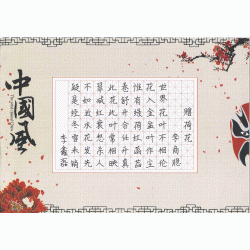 赠荷花
李商隐
世界花叶不相伦
花入金盆叶作尘
惟有绿荷红菡萏
卷舒开合任天真
此花此叶常相映
翠减红衰愁杀人
不如近水花先发
疑是经冬雪未销
李鑫磊
中國風